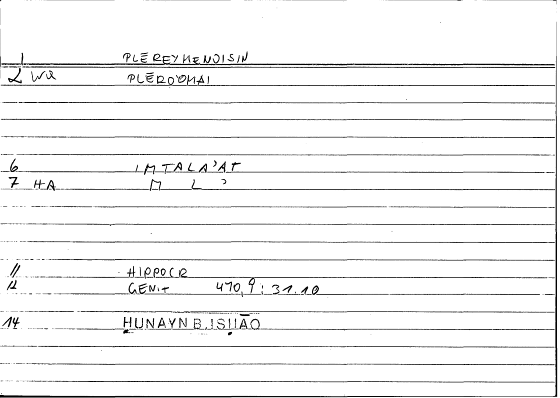 1 PLĒREYMENOISIN
2 WQ PLĒROYMAI
6 IMTALA'AT
7 HA M L '
11 HIPPOCR
12 GENIT 470,9; 31.10
14 ḤUNAYN B. ISḤĀQ